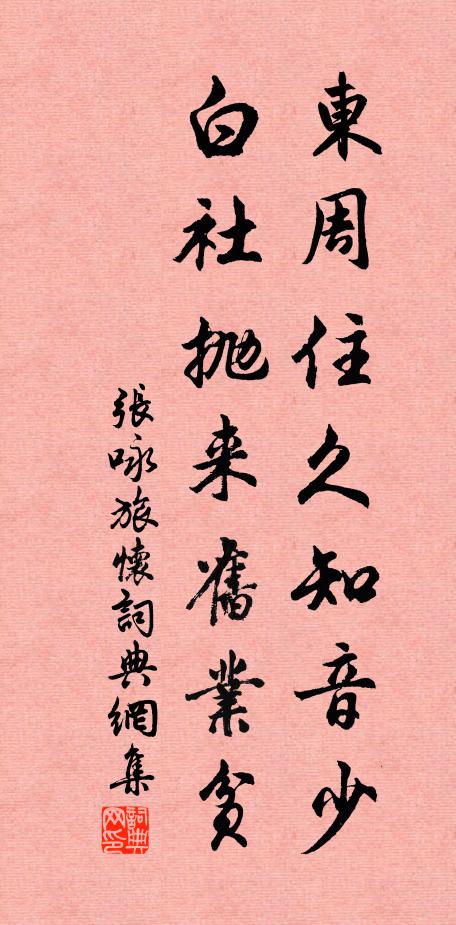 東周住久知音少
白社抛来舊業貧
張咏旅懷詞典網集
詞典网印